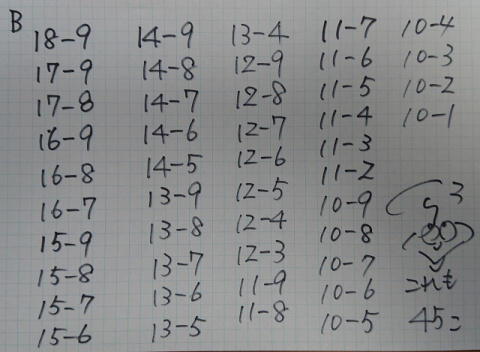 B
18-9
17-9
17-8
16-9
16-8
16-7
15-9
15-8
15-7
15-6
14-9
14-8
14-7
14-6
14-5
13-9
13-8
13-7
13-6
13-5
13-4
12-9
12-8
12-7
12-6
12-5
12-4
12-3
11-9
11-8
11-7
11-6
11-5
11-4
11-3
11-2
10-9
10-8
10-7
10-6
10-5
10-4
10-3
10-2
10-1
45=